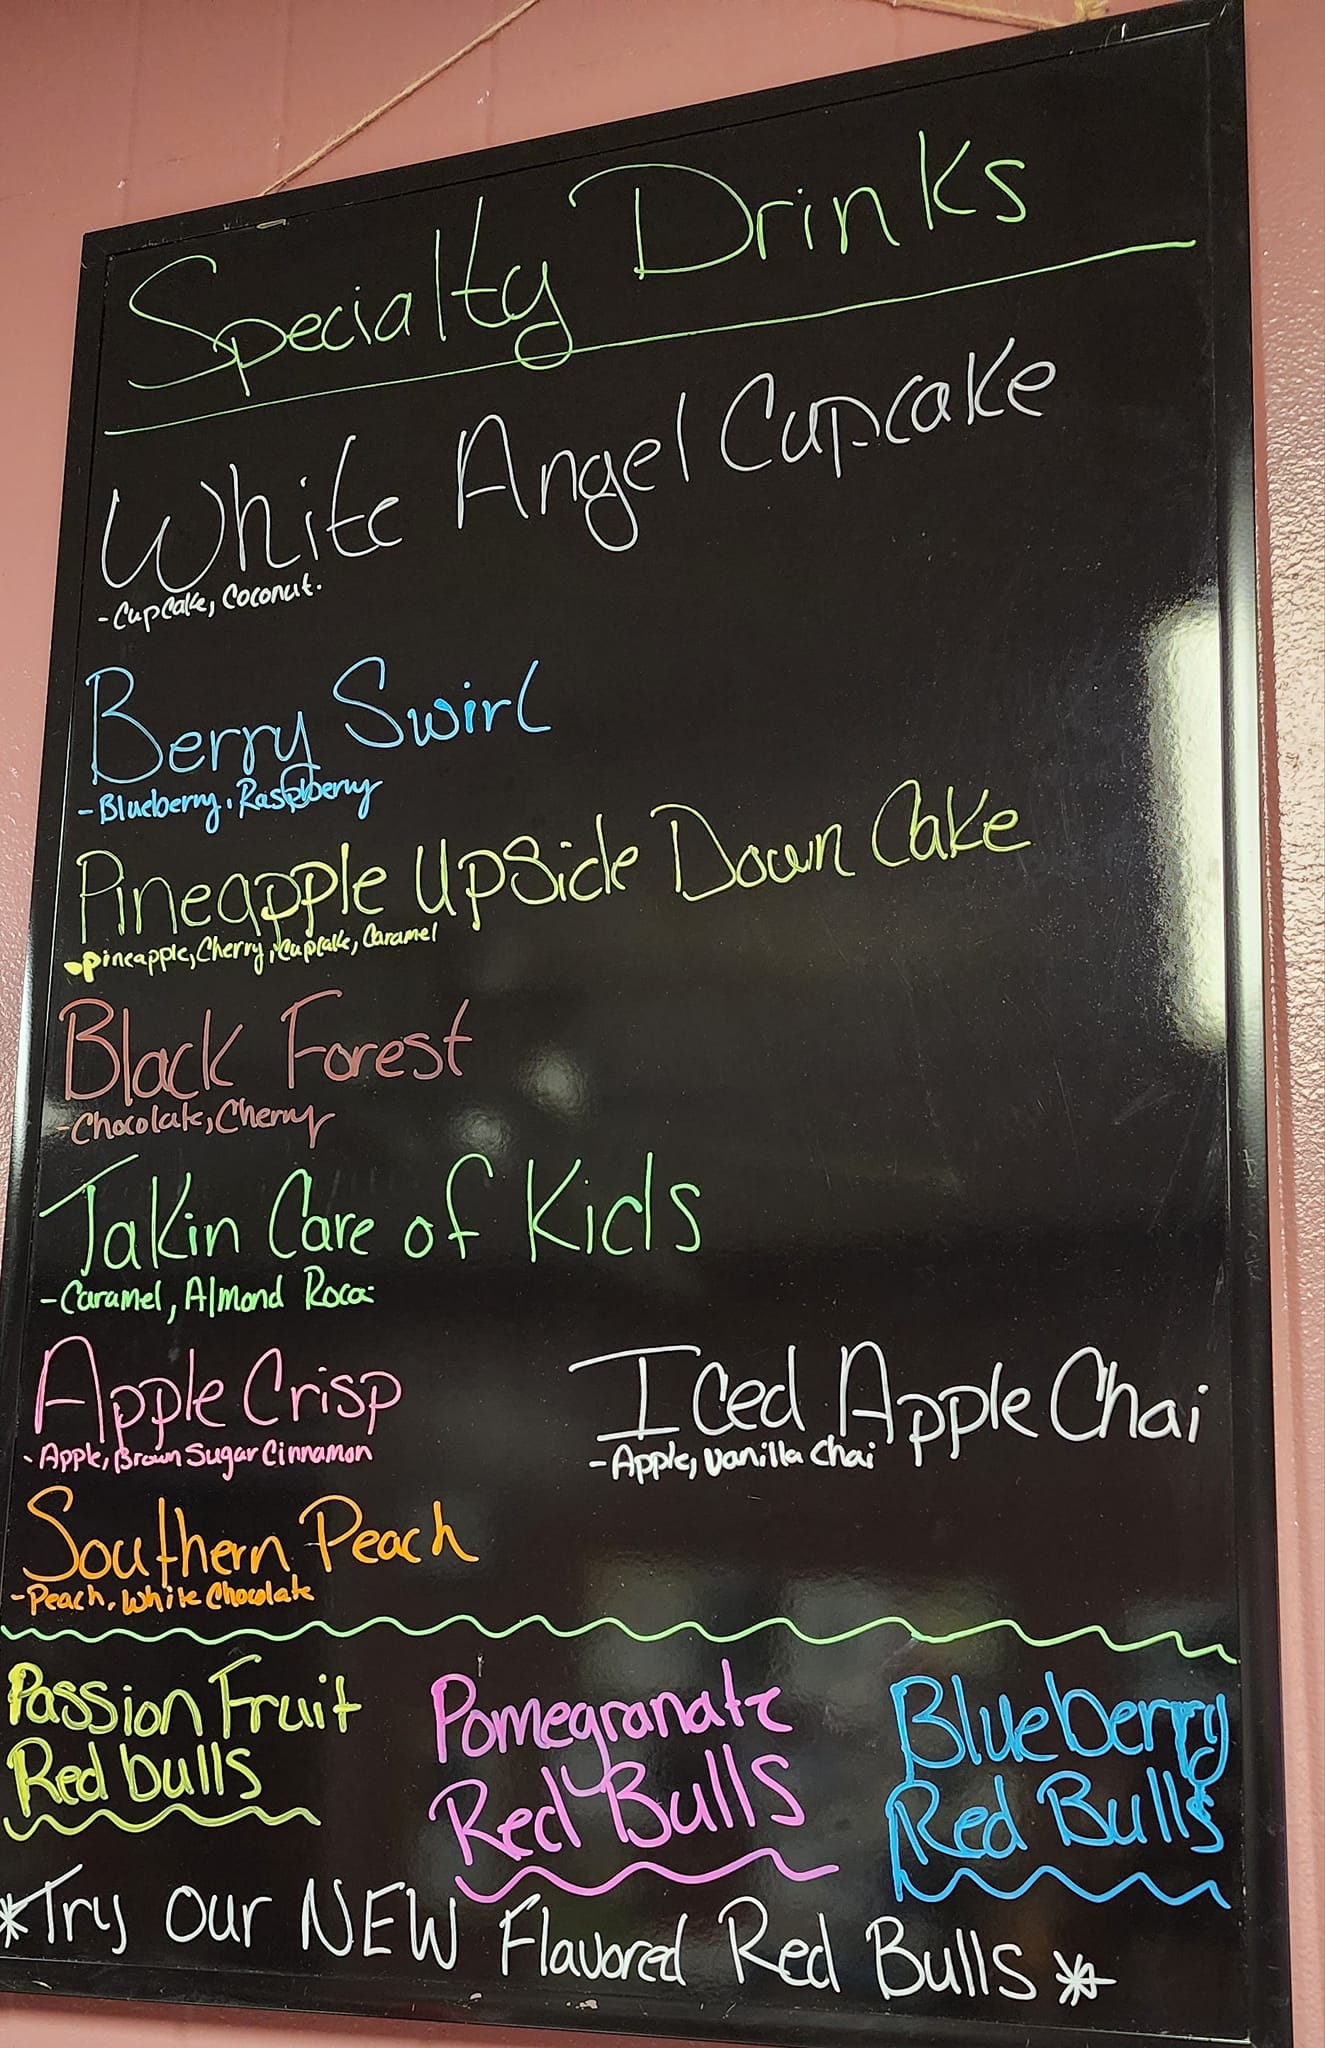 Specialty Drinks
White Angel Cupcake
- Cupcake, Coconut.
Berry Swirl
- Blueberry, Raspberry
Pineapple Upside Down Cake
- Pineapple, Cherry, Cupcake, Caramel
Black Forest
- Chocolate, Cherry
Takin Care of Kids
- Caramel, Almond Roca
Apple Crisp
- Apple, Brown Sugar Cinnamon
Iced Apple Chai
- Apple, Vanilla Chai
Southern Peach
- Peach, White Chocolate
Passion Fruit
Red bulls
Pomegranate
Red Bulls
Blueberry
Red Bulls
*Try our NEW Flavored Red Bulls*